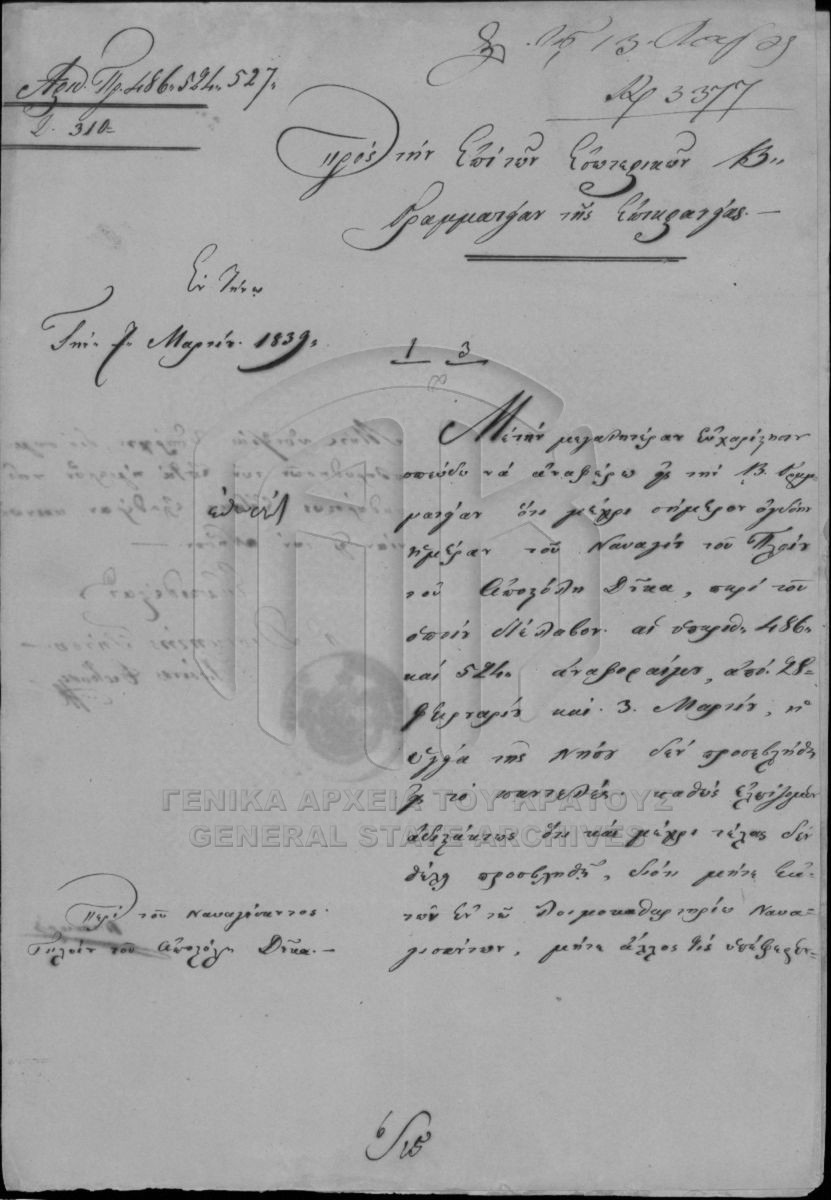 13
3377
Αριθ. Πρ. 486. 524. 527.
Δ. 310
Πρὸς τὴν Ἐπὶ τῶν Ἐσωτερικῶν Β.
Γραμματείαν τῆς Ἐπικρατείας.
Ἐν Τήνῳ
Τὴν 7 Μαρτίου 1839.
1 3
Μὲ τὴν μεγαλητέραν εὐχαρίστησιν
σπεύδω νὰ ἀναφέρω εἰς τὴν Β. Γραμ-
ματείαν ὅτι μέχρι σήμερον ὀγδόην
ἡμέραν τοῦ Ναυαγίου τοῦ Πλοίου
τοῦ Ἀποστόλη Δήκα, περὶ τοῦ
ὁποίου διέλαβον αἱ ὑπ' ἀριθ. 486
καὶ 524 ἀναφοραί μου, ἀπὸ 28
Φεβρουαρίου καὶ 3 Μαρτίου, ἡ
ὑγεία τῆς Νήσου δὲν προσεβλήθη
εἰς τὸ παντελές· καθὼς ἐλπίζομεν
ἀδιστάκτως ὅτι καὶ μέχρι τέλους δὲν
θέλει προσβληθῆ, διότι μήτε ἐκ
τῶν ἐν τῷ Λοιμοκαθαρτηρίῳ Ναυα-
γισάντων, μήτε ἄλλος τις ὑπέφερεν
Περὶ τοῦ Ναυαγήσαντος
Πλοίου τοῦ Ἀποστόλη Δήκα.
ΓΕΝΙΚΑ ΑΡΧΕΙΑ ΤΟΥ ΚΡΑΤΟΥΣ
GENERAL STATE ARCHIVES